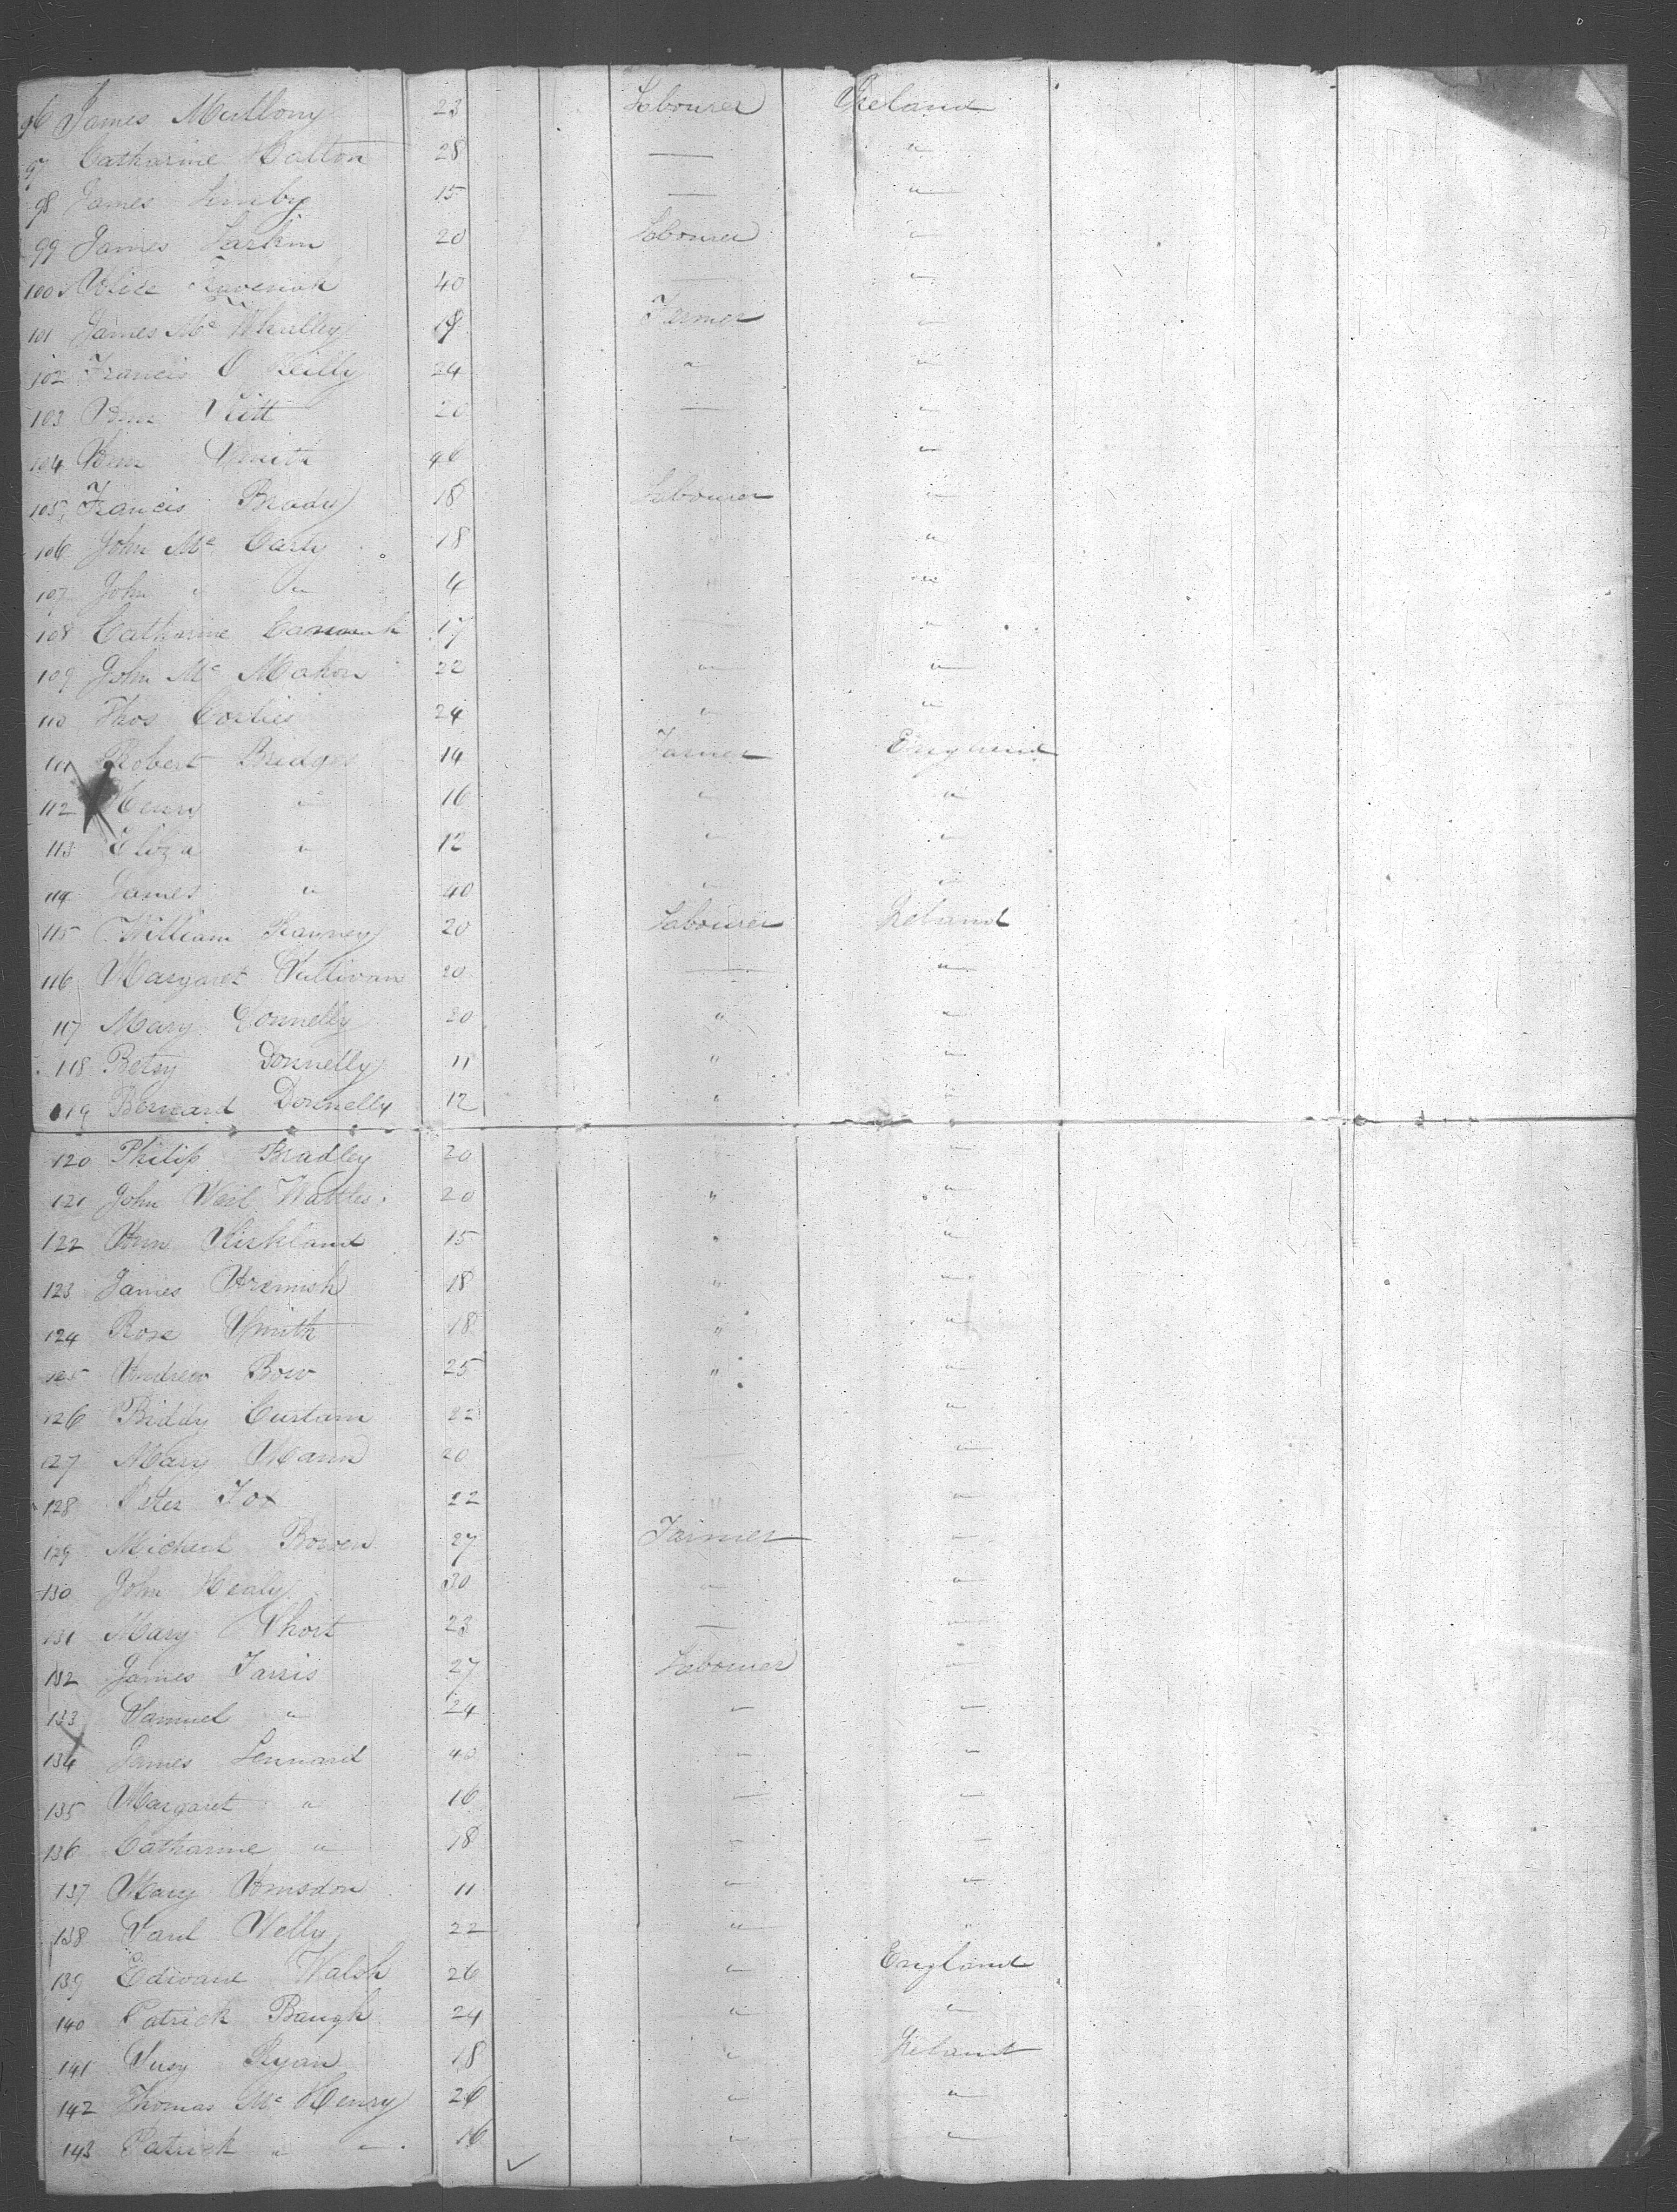 96 James Mullony 23 Labourer Ireland
97 Catharine Halton 28 — "
98 James 15 — "
99 James Larkin 20 Labourer "
100 Alice Kavenah 40 — "
101 James Mc 19 Farmer "
102 Francis O Reilly 24 " "
103 Ann Kitt 20 — "
104 Ann Smith 46 "
105 Francis Brady 18 Labourer "
106 John Mc Carty 18 " "
107 John " " 4 " "
108 Catharine 17 — "
109 John Mc Mahon 22 " "
110 Thos 24 " "
111 Robert Bridges 14 Farmer England
112 Henry " 16 " "
113 Eliza " 12 " "
114 James " 40 " "
115 William Ranney 20 Labourer Ireland
116 Margaret Sullivan 20 — "
117 Mary Donnelly 20 " "
118 Betsy Donnelly 11 " "
119 Bernard Donnelly 12 " "
120 Philip Bradley 20 "
121 John Neil Wattles 20 " "
122 Ann Kirkland 15 " "
123 James 18 " "
124 Rose Smith 18 " "
125 Andrew Bow 25 " "
126 Biddy Curtain 22 — "
127 Mary Mann 20 — "
128 Peter Fox 22 " "
129 Micheal Bowen 27 Farmer "
130 John Healy 30 " "
131 Mary Short 23 — "
132 James Farris 27 Labourer "
133 Samuel " 24 " "
134 James Lennard 40 " "
135 Margaret " 16 " "
136 Catharine " 18 " "
137 Mary Amsdon 11 " "
138 Paul Kelly 22 " "
139 Edward Walsh 26 " England
140 Patrick Baugh 24 " "
141 Susy Ryan 18 " Ireland
142 Thomas Mc Henry 26 " "
143 Patrick " " 16 " "